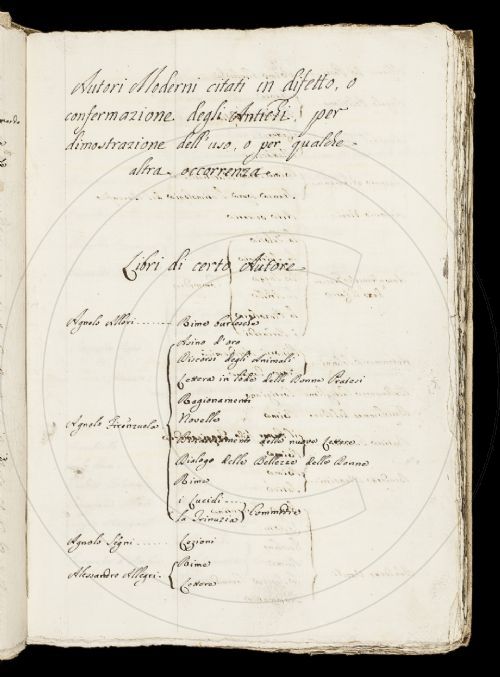 Autori Moderni citati in difetto, o
confermazione degli Antichi, per
dimostrazione dell'uso, o per qualche
altra occorrenza
Libri di certo Autore
Agnolo Allori Rime burlesche
Asino d'oro
Discorsi degli Animali
Lettera in lode delle Donne Pratesi
Ragionamenti
Novelle
Agnolo Firenzuola
Discacciamento delle nuove Lettere
Dialogo delle Bellezze delle Donne
Rime
i Lucidi
la Trinuzia Commedie
Agnolo Segni Lezioni
Rime
Alessandro Allegri
Lettere